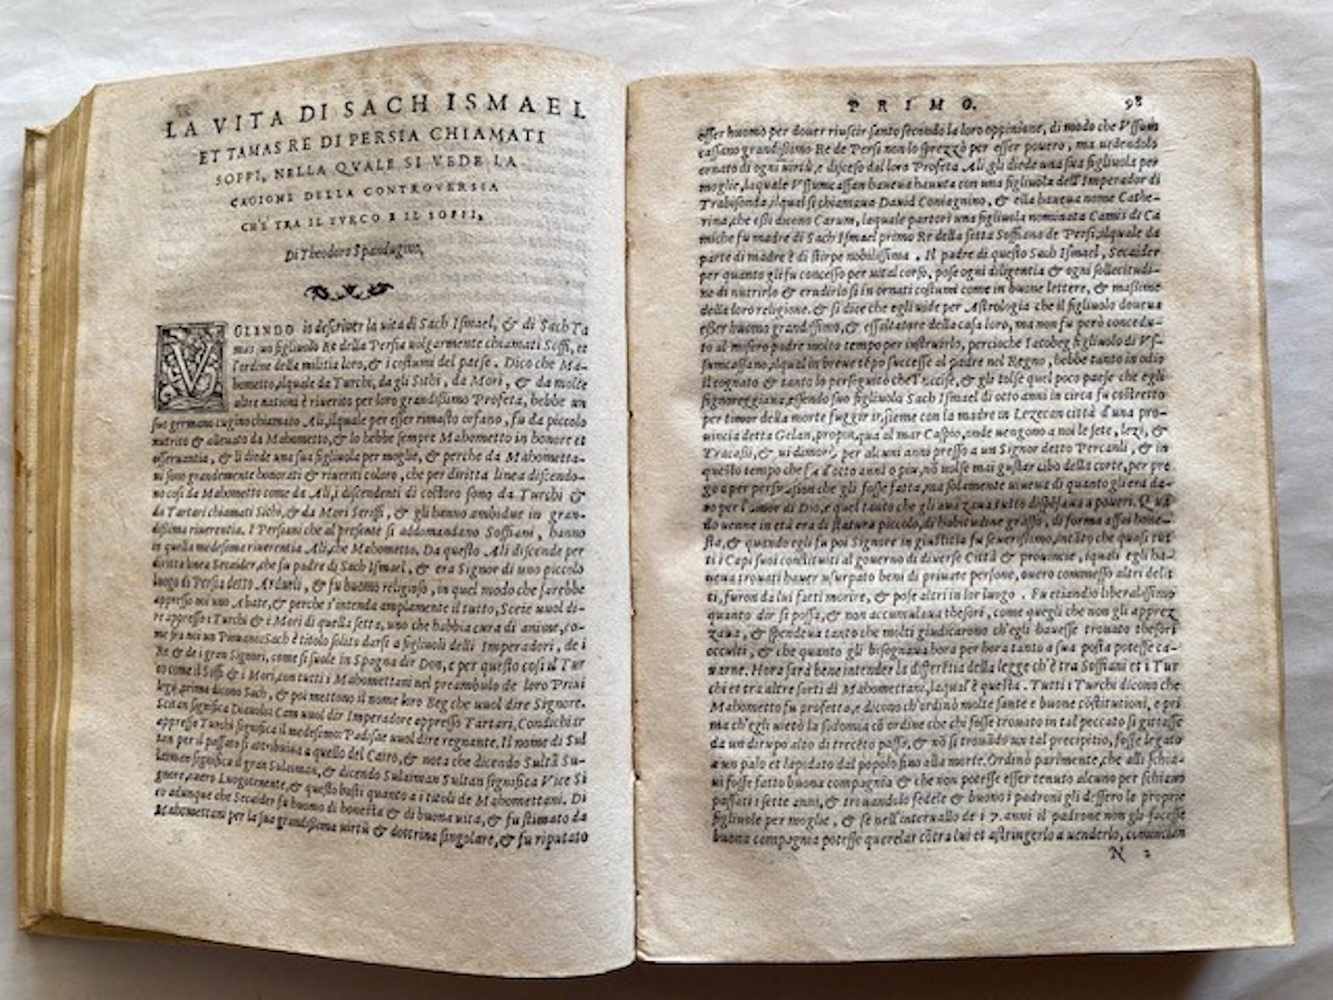 LA VITA DI SACH ISMAEL
ET TAMAS RE DI PERSIA CHIAMATI
SOFFI, NELLA QVALE SI VEDE LA
CAGIONE DELLA CONTROVERSIA
CH'È TRA IL TVRCO E IL SOFFI,
Di Theodoro Spandugino,
VOLENDO io descriuer la vita di Sach Ismael, & di Sach Ta
mas suo figliuolo Re della Persia uolgarmente chiamati Soffi, et
l'ordine della militia loro, & i costumi del paese. Dico che Ma-
hometto, ilquale da Turchi, da gli Sithi, da Mori, & da molte
altre nationi è riuerito per loro grandissimo Profeta, hebbe un
suo germano cugino chiamato Ali, ilquale per esser rimasto orfano, fu da piccolo
nutrito & alleuato da Mahometto, & lo hebbe sempre Mahometto in honore et
osseruantia, & li diede una sua figliuola per moglie, & perche da Mahometta-
ni sono grandemente honorati & riueriti coloro, che per diritta linea discendo-
no cosi da Mahometto come da Ali, i discendenti di costoro sono da Turchi &
da Tartari chiamati Sithi, & da Mori Seroffi, & gli hanno ambidue in gran-
dissima riuerentia. I Persiani che al presente si addomandano Soffiani, hanno
in quella medesima riuerentia Ali, che Mahometto. Da questo Ali discende per
diritta linea Secaider, che fu padre di Sach Ismael, & era Signor di uno piccolo
luogo di Persia detto Ardueli, & fu huomo religioso, in quel modo che sarebbe
appresso noi uno Abate, & perche s'intenda amplamente il tutto, Sceic uuol di-
re appresso i Turchi & i Mori di quella setta, uno che habbia cura di anime, co-
me fra noi un Piouano: Sach è titolo solito darsi a figliuoli delli Imperadori, de i
Re & de i gran Signori, come si suole in Spagna dir Don, e per questo cosi il Tur
co come il Soffi & i Mori, con tutti i Mahomettani nel preambulo de loro Priui
legij, prima dicono Sach, & poi mettono il nome loro Beg che uuol dire Signore.
Sceitan significa Diauolo: Cam uuol dir Imperadore appresso Tartari, Condichi ir
appresso Turchi significa il medesimo: Padisac uuol dire regnante. Il nome di Sul
tan per il passato si attribuiua a quello del Cairo, & nota che dicendo Sultã Su-
laiman significa il gran Sulaiman, & dicendo Sulaiman Sultan significa Vice Si
gnore, ouero Luogotenente, & questo basti quanto a i titoli de Mahomettani. Di
co adunque che Secaider fu huomo di honesta & di buona vita, & fu stimato da
Mahomettani per la sua grandissima virtù & dottrina singolare, & fu riputato
PRIMO. 98
esser huomo per douer riuscir santo secondo la loro oppinione, di modo che Vssum
cassano grandissimo Re de Persi non lo sprezzò per esser pouero, ma uedendolo
ornato di ogni uirtù, e disceso dal loro Profeta Ali, gli diede una sua figliuola per
moglie, laquale Vssumcassan haueua hauuta con una figliuola dell'Imperador di
Trabisonda, ilqual si chiamaua Dauid Comagnino, & ella haueua nome Cathe-
rina, che essi dicono Carum, laquale partorì una figliuola nominata Camis di Ca
miche fu madre di Sach Ismael primo Re della setta Soffiana de Persi, ilquale da
parte di madre è di stirpe nobilissima. Il padre di questo Sach Ismael, Secaider
per quanto gli fu concesso per uital corso, pose ogni diligentia & ogni sollecitudi-
ne di nutrirlo & erudirlo sì in ornati costumi come in buone lettere, & massime
della loro religione. & si dice che egli uide per Astrologia che il figliuolo doueua
esser huomo grandissimo, & essaltatore della casa loro, ma non fu però concedu-
to al misero padre molto tempo per instruirlo, percioche Iacobeg figliuolo di Vs-
sumcassano, ilqual in breue tẽpo successe al padre nel Regno, hebbe tanto in odio
il cognato & tanto lo perseguitò che l'uccise, & gli tolse quel poco paese che egli
signoreggiaua, essendo suo figliuola Sach Ismael di otto anni in circa fu costretto
per timor della morte fuggir insieme con la madre in Lezecan città d'una pro-
uincia detta Gelan, propinqua al mar Caspio, onde uengono a noi le sete, lezi, &
Tracasii, & ui dimorò, per alcuni anni presso a un Signor detto Percanli, & in
questo tempo che fu d'otto anni o piu, nõ uolse mai gustar cibo della corte, per pre
go o per persuasion che gli fosse fatta, ma solamente uiueua di quanto gli era da-
no per l'amor di Dio, e quel tanto che gli auanzaua tutto dispẽsaua a poueri. Quã
do uenne in età era di statura piccolo, di habitudine grasso, di forma assai hone-
sta, & quando egli fu poi Signore in giustitia fu seuerissimo, intãto che quasi tut
ti i Capi suoi constituiti al gouerno di diuerse Città & prouincie, iquali egli ha-
ueua trouati hauer usurpato beni di priuate persone, ouero commesso altri delit
ti, furon da lui fatti morire, & pose altri in lor luogo. Fu etiandio liberalissimo
quanto dir si possa, & non accumulaua thesori, come quegli che non gli apprez
zaua, & spendeua tanto che molti giudicarono ch'egli hauesse trouato thesori
occulti, & che quanto gli bisognaua hora per hora tanto a sua posta potesse ca-
uarne. Hora sarà bene intender la differẽtia della legge ch'è tra Soffiani et i Tur
chi et tra altre sorti di Mahomettani, laqual'è questa. Tutti i Turchi dicono che
Mahometto fu profeta, e dicono ch'ordinò molte sante e buone cõstitutioni, e pri
ma ch'egli uietò la sodomia cõ ordine che chi fosse trouato in tal peccato si gittasse
da un dirupo alto di trecẽto passi, & nõ si trouãdo un tal precipitio, fosse legato
a un palo et lapidato dal popolo fino alla morte. Ordinò parimente, che alli schia-
ui fosse fatto buona compagnia & che non potesse esser tenuto alcuno per schiauo
passati i sette anni, & trouandolo fedele & buono i padroni gli dessero le proprie
figliuole per moglie, & se nell'interuallo de i 7. anni il padrone non gli facesse
buona compagnia potesse querelar cõtra lui et astringerlo a uenderlo, comincian
N 2